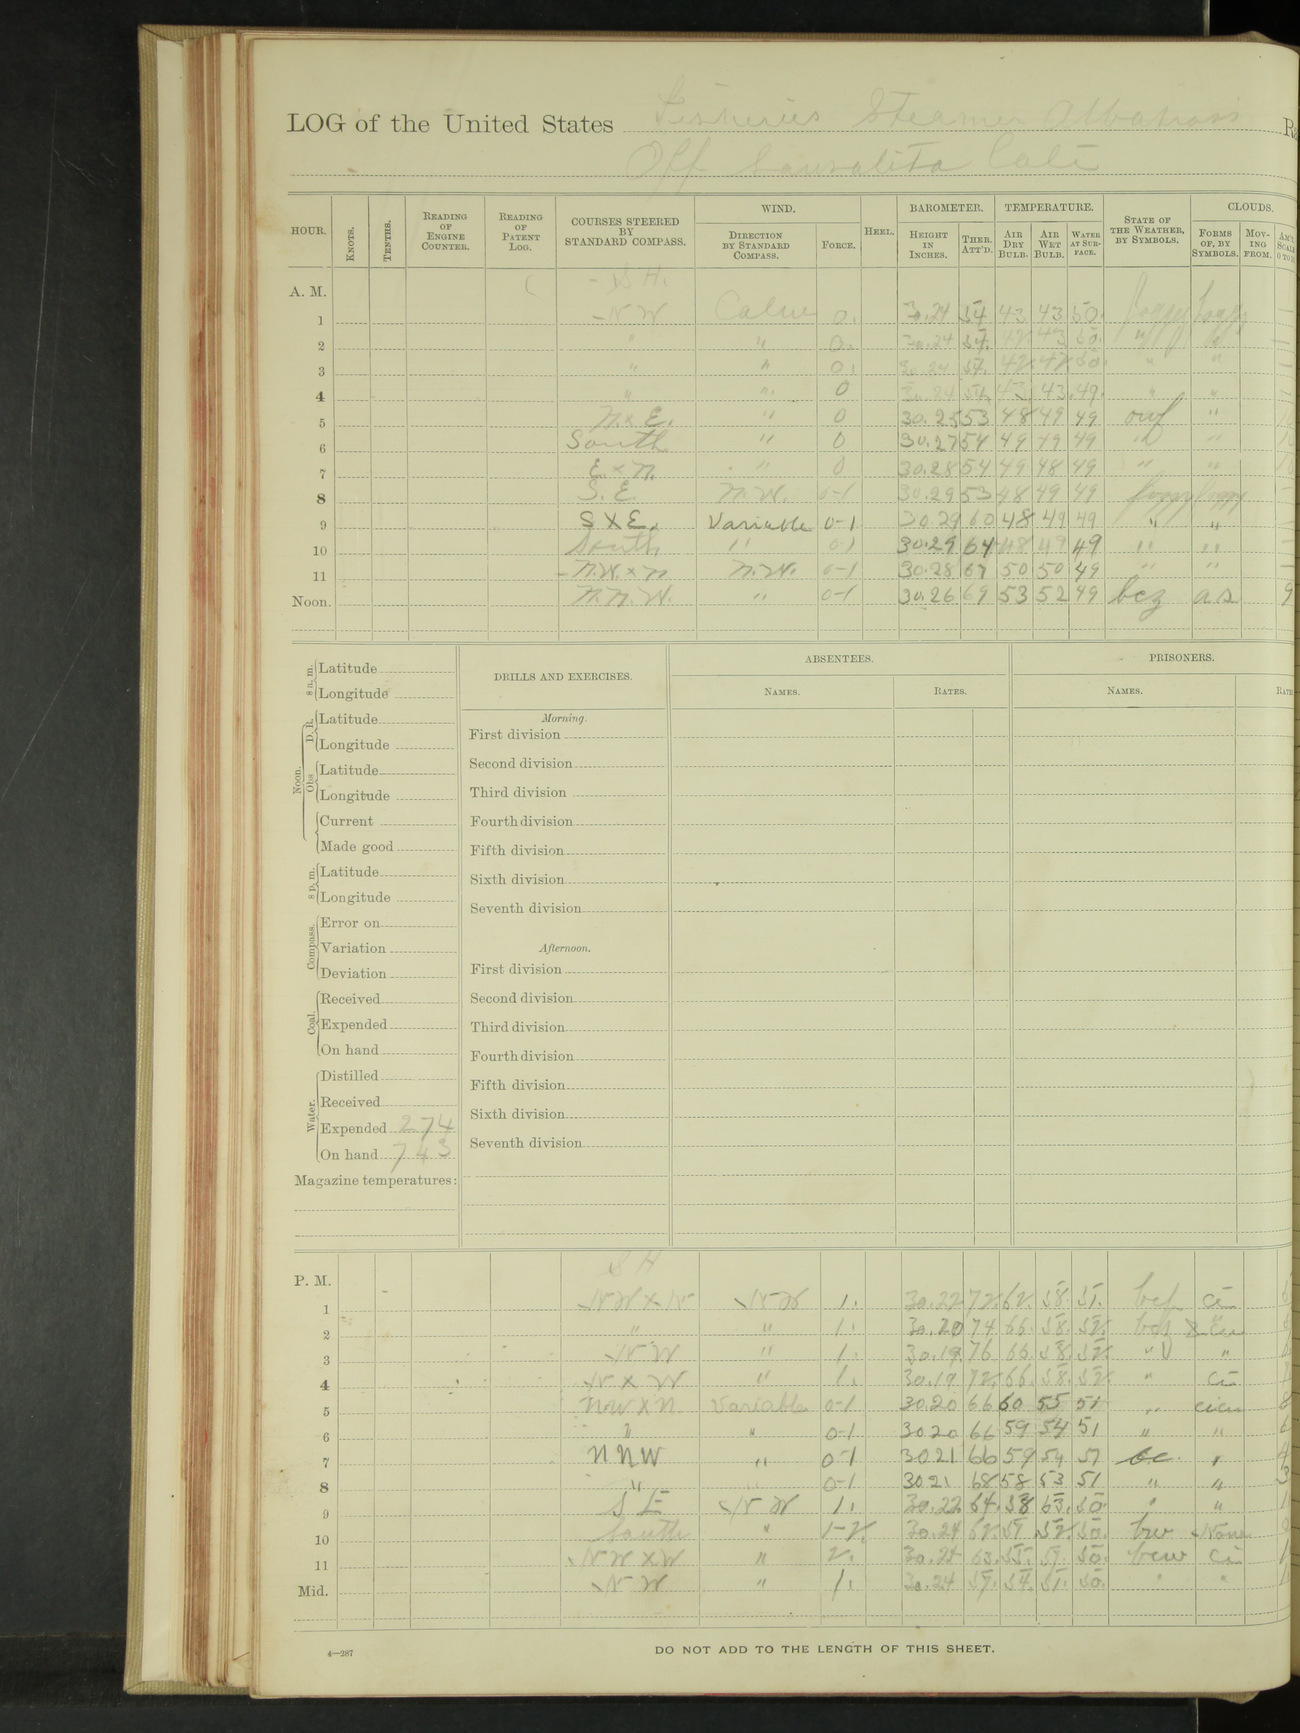 LOG of the United States Fisheries Steamer Albatross
Off Sausalito Cali
HOUR. KNOTS. TENTHS. READING OF ENGINE COUNTER. READING OF PATENT LOG. COURSES STEERED BY STANDARD COMPASS. WIND. DIRECTION BY STANDARD COMPASS. FORCE. HEEL. BAROMETER. HEIGHT IN INCHES. THER. ATT'D. TEMPERATURE. AIR DRY BULB. AIR WET BULB. WATER AT SURFACE. STATE OF THE WEATHER, BY SYMBOLS. CLOUDS. FORMS OF, BY SYMBOLS. MOVING FROM.
A. M. S H.
1 NW Calm 0. 30.24 54 43 43 50. foggy
2 " " 0. 30.24 54. 43 50.
3 " " 0. 30.24 50. " "
4 " " 0 30.24 43 43. 49. " "
5 N. x E. " 0 30.25 53 48 49 49 "
6 South " 0 30.27 54 49 49 49 " "
7 E. x N. " 0 30.28 54 49 48 49 " "
8 S. E. N.W. 0-1 30.29 53 48 49 49 foggy foggy
9 S X E. Variable 0-1 30.29 60 48 49 49 " "
10 South " 0-1 30.29 64 48 49 49 " "
11 N.W. x N N.W. 0-1 30.28 67 50 50 49 " "
Noon. N.N.W. " 0-1 30.26 69 53 52 49 bcz a.s. 9
8 a. m. Latitude
Longitude
Noon. D. R. Latitude
Longitude
Obs Latitude
Longitude
Current
Made good
8 p. m. Latitude
Longitude
Compass. Error on
Variation
Deviation
Coal. Received
Expended
On hand
Water. Distilled
Received
Expended 274
On hand 743
Magazine temperatures:
DRILLS AND EXERCISES.
Morning.
First division
Second division
Third division
Fourth division
Fifth division
Sixth division
Seventh division
Afternoon.
First division
Second division
Third division
Fourth division
Fifth division
Sixth division
Seventh division
ABSENTEES.
NAMES. RATES.
PRISONERS.
NAMES.
P. M. S H
1 NW x N NW 1. 30.22 72. 62. 58. 51. ci
2 " " 1. 30.20 74 66. 58. 52.
3 NW " 1. 30.19 76 66. 58. 52. " "
4 N x W " 1. 30.19 72. 66. 58. 52. " ci
5 NW X N Variable 0-1 30.20 66 60 55 51 " cicu 8
6 " " 0-1 30 20 66 59 54 51 " " 6
7 N N W " 0-1 30 21 66 59 54 51 bc. " 4
8 " " 0-1 30 21 68 58 53 51 " " 3
9 S E NW 1. 30.22 64. 58 50. " "
10 South " 1-2. 30.24 62. 52. 50. None
11 NW x W " 2. 30.24 63. 55. 50. bcw Ci
Mid. NW " 1. 30.24 54. 51. 50. " "
4—287
DO NOT ADD TO THE LENGTH OF THIS SHEET.